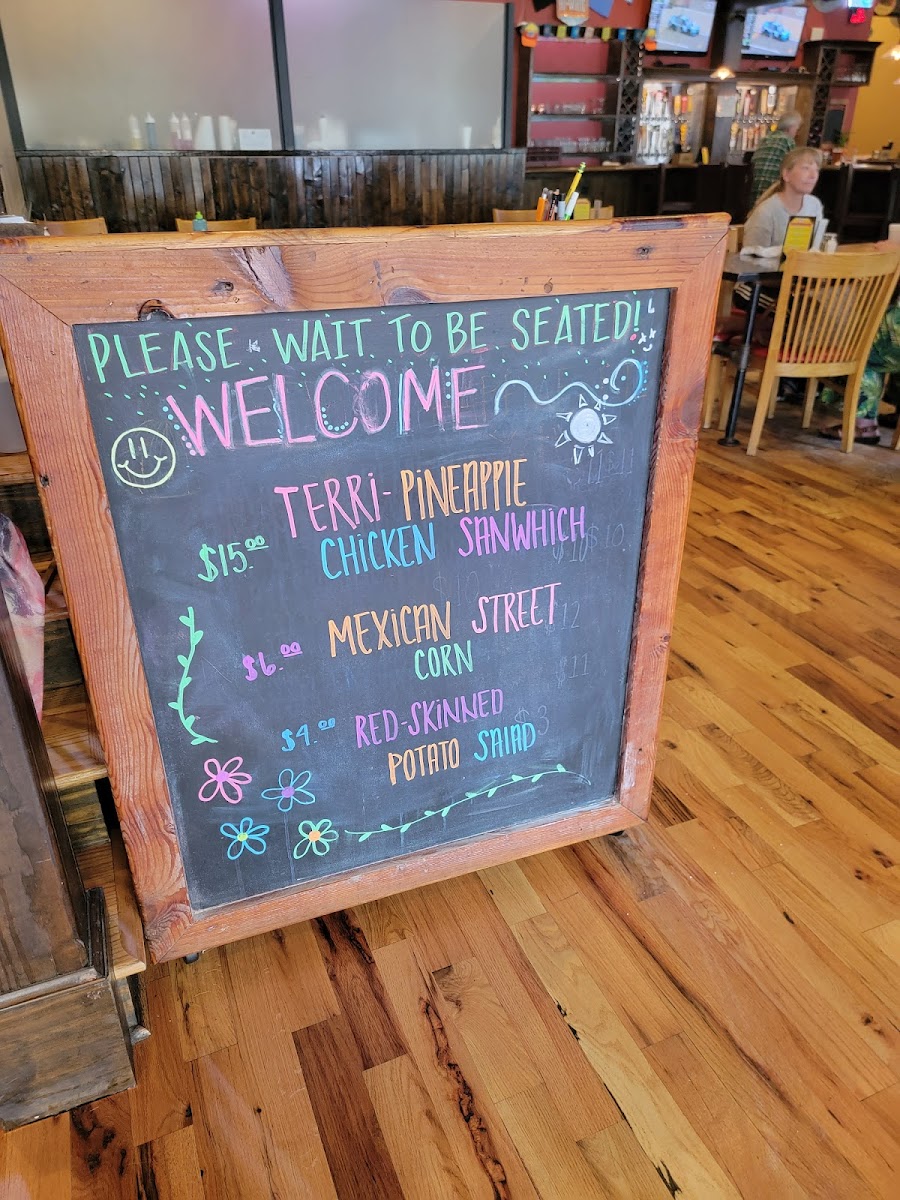 PLEASE WAIT TO BE SEATED!
WELCOME
TERRI-PINEAPPLE
$15.00 CHICKEN SANWHICH
MEXICAN STREET
$6.00 CORN
$4.00 RED-SKINNED
POTATO SALAD